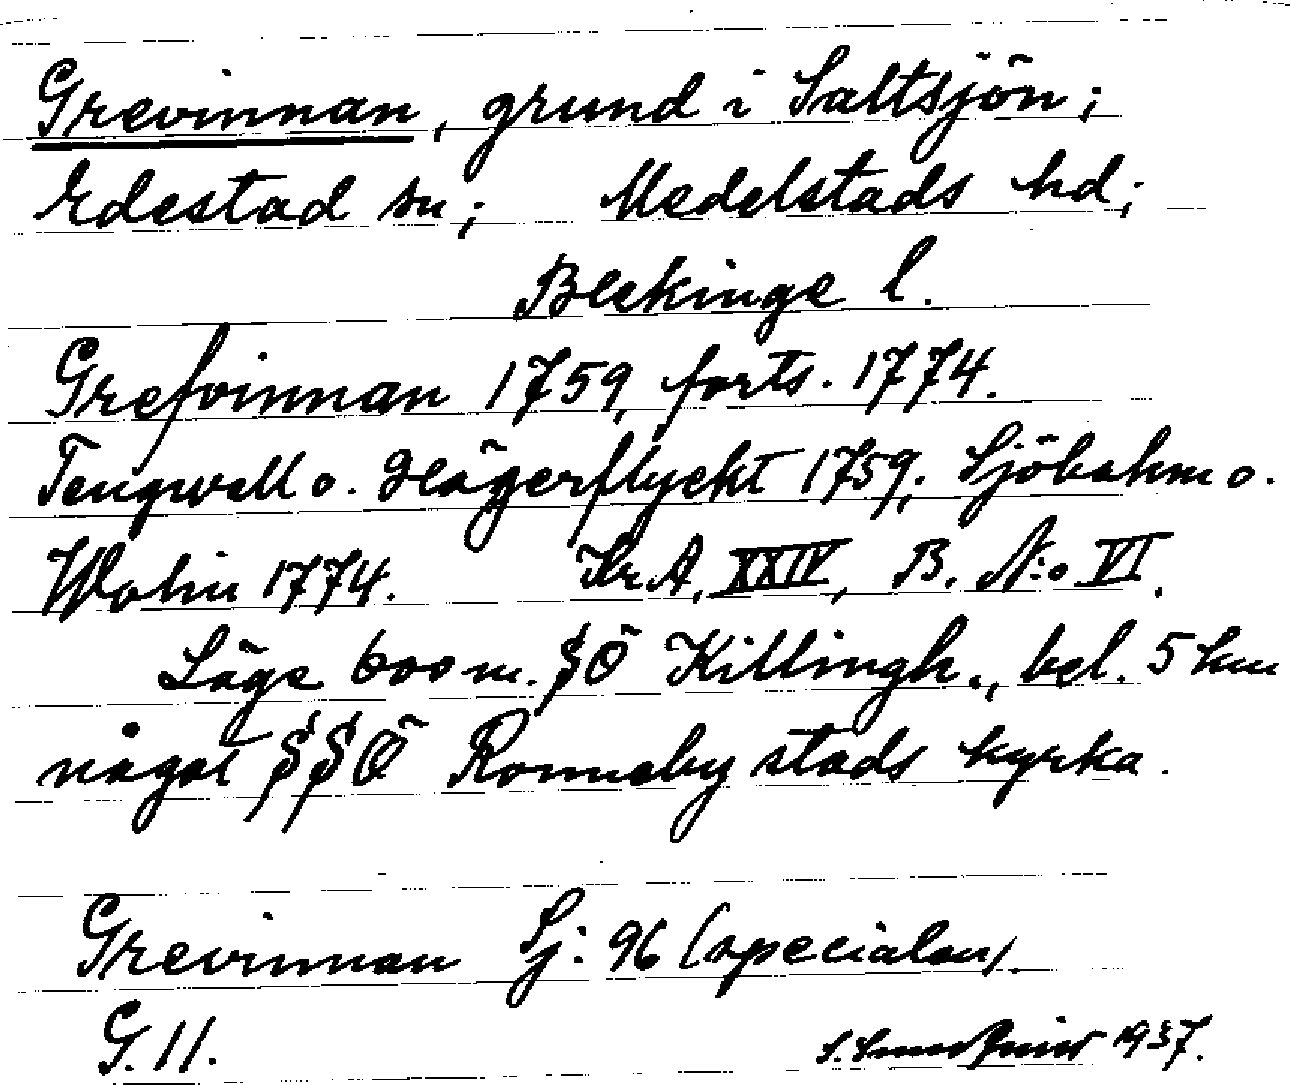 Grevinnan, grund i Saltsjön;
Edestad sn; Medelstads hd;
Blekinge l.
Grefvinnan 1759, forts. 1774.
Tengwall o. Hägerflyckt 1759; Sjöbohm o.
Wohin 1774. Kr.A. XXIV, B. N:o VI.
Läge 600 m. SÖ Killingh., bel. 5 km
något SSÖ Ronneby stads kyrka.
Grevinnan Sj: 96 (specialen).
G. 11.
1937.